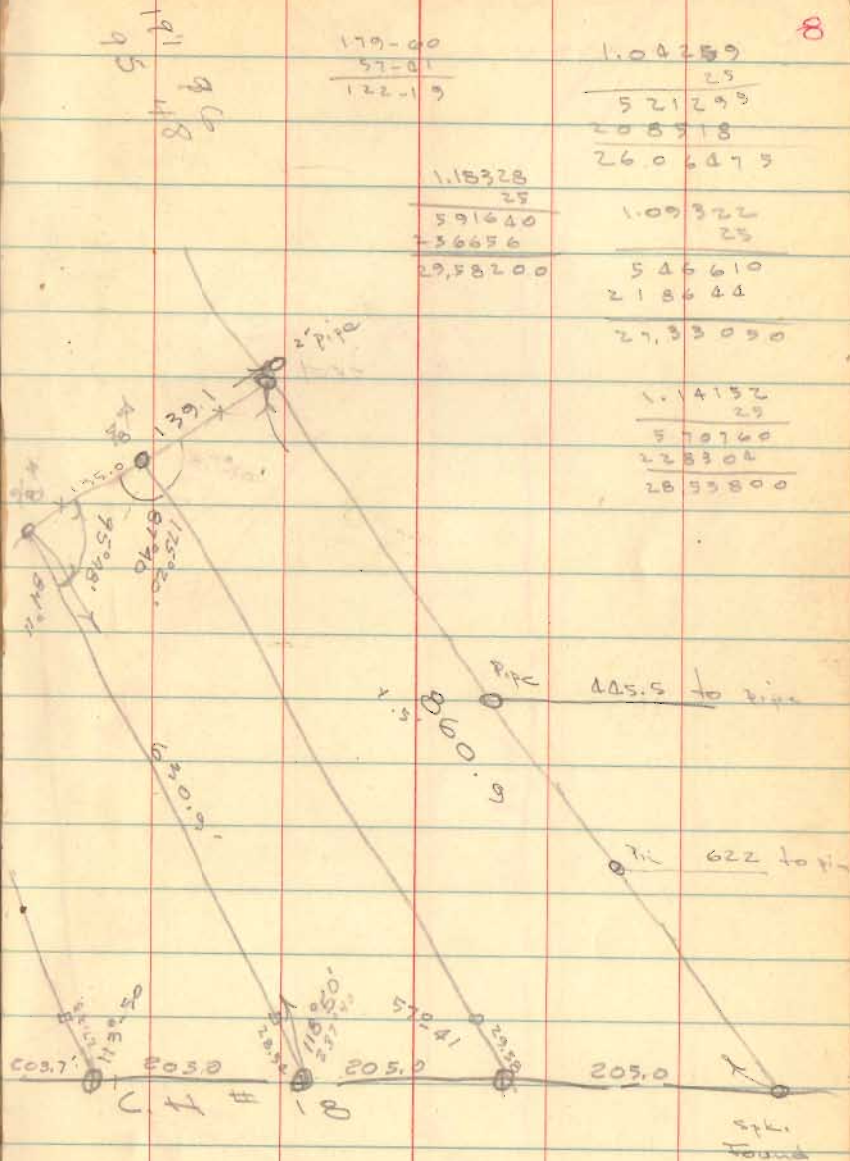 8
191
95
96
48
179-60
57-41
122-19
1.04259
25
521295
208518
26.06475
1.18328
25
591640
236656
29,58200
1.09322
25
546610
218644
27,33050
1.14152
25
570760
228304
28 53800
2" pipe
139.1
135.0
95°48'
87°40
125°20'
84°12
Pipe
445.5 to pipe
860.9
Pin 622 to pin
630.9'
113°-50
118°50'
237°40
57°41
28.54
29.58
203.7'
203.0
205.0
205.0
C.H. # 18
Spk.
Found